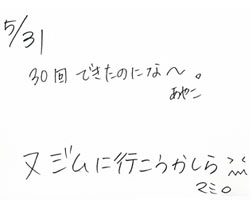 5/31
30回できたのにな〜。
あやこ
ヌジムに行こうかしら
マミ〇